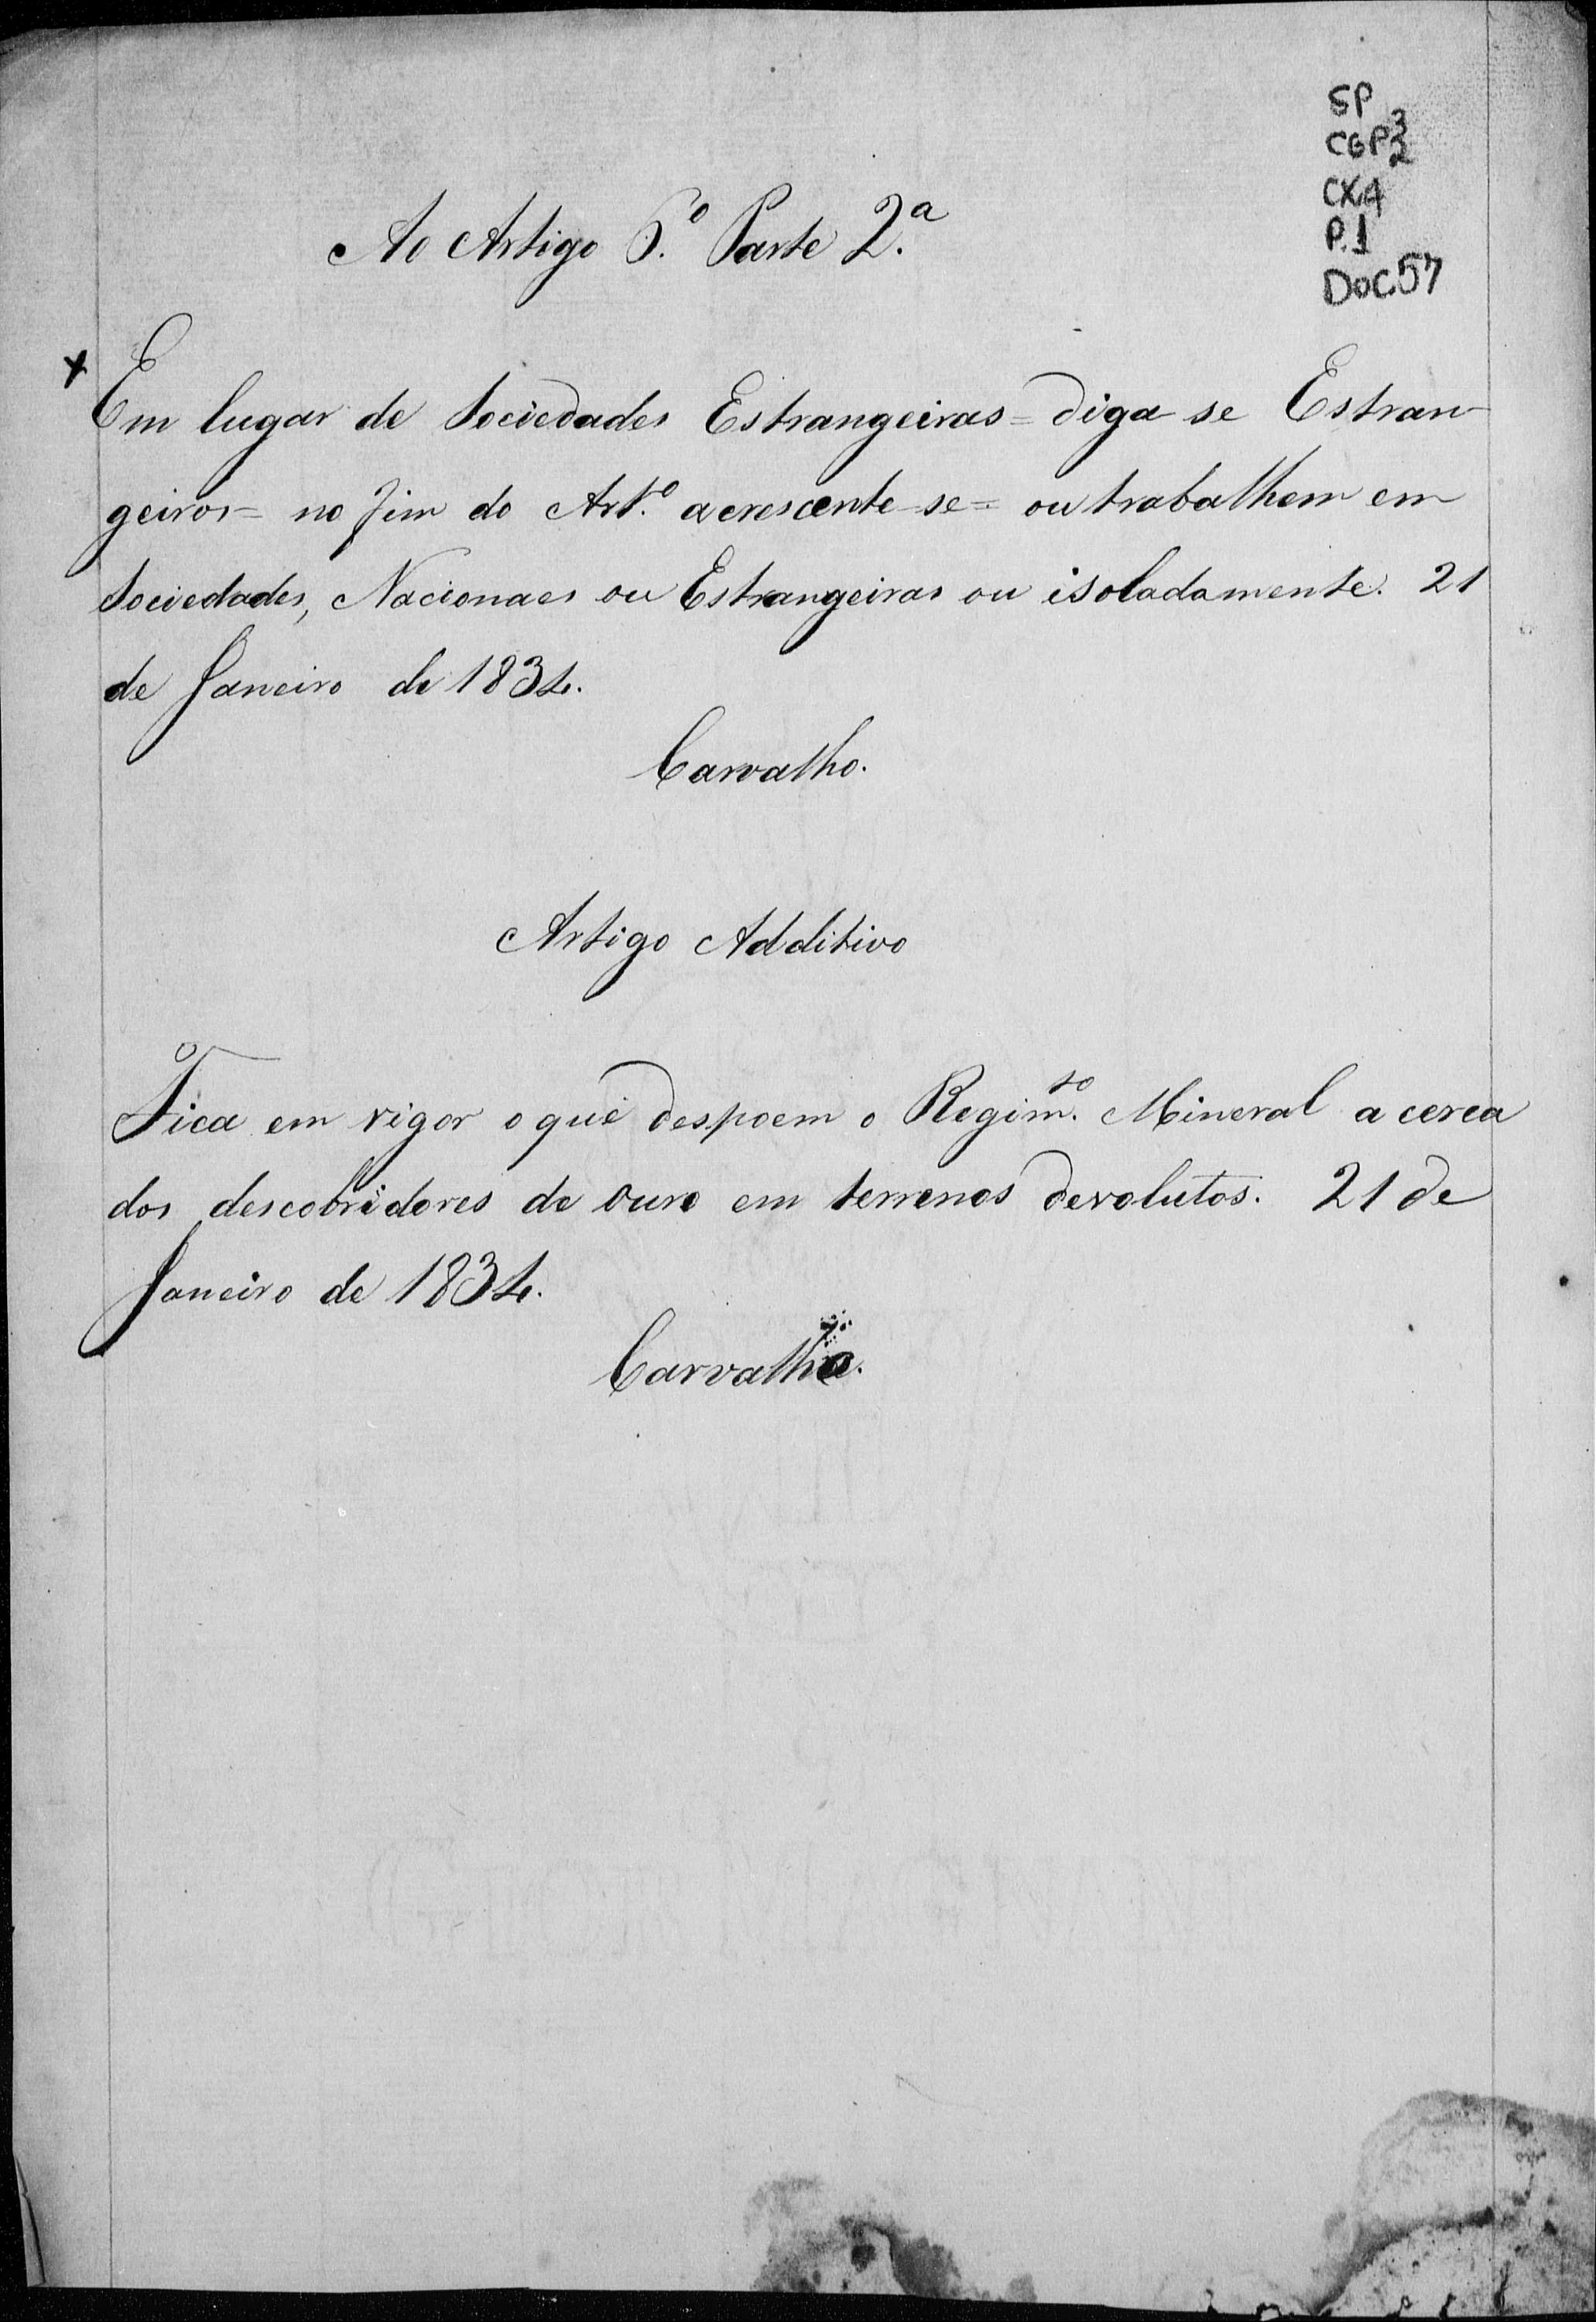 SP
CGP 3
2
CX.4
P.1
DOC.57
Ao Artigo 6.º Parte 2.ª
x Em lugar de Sociedades Estrangeiras = diga-se Estran-
geiros = no fim do Art.º acrescente-se = ou trabalhem em
Sociedades, Nacionaes ou Estrangeiras ou isoladamente. 21
de Janeiro de 1834.
Carvalho.
Artigo Additivo
Fica em vigor o que despoem o Regim.to Mineral a cerca
dos descobridores de ouro em terrenos devolutos. 21 de
Janeiro de 1834.
Carvalho.